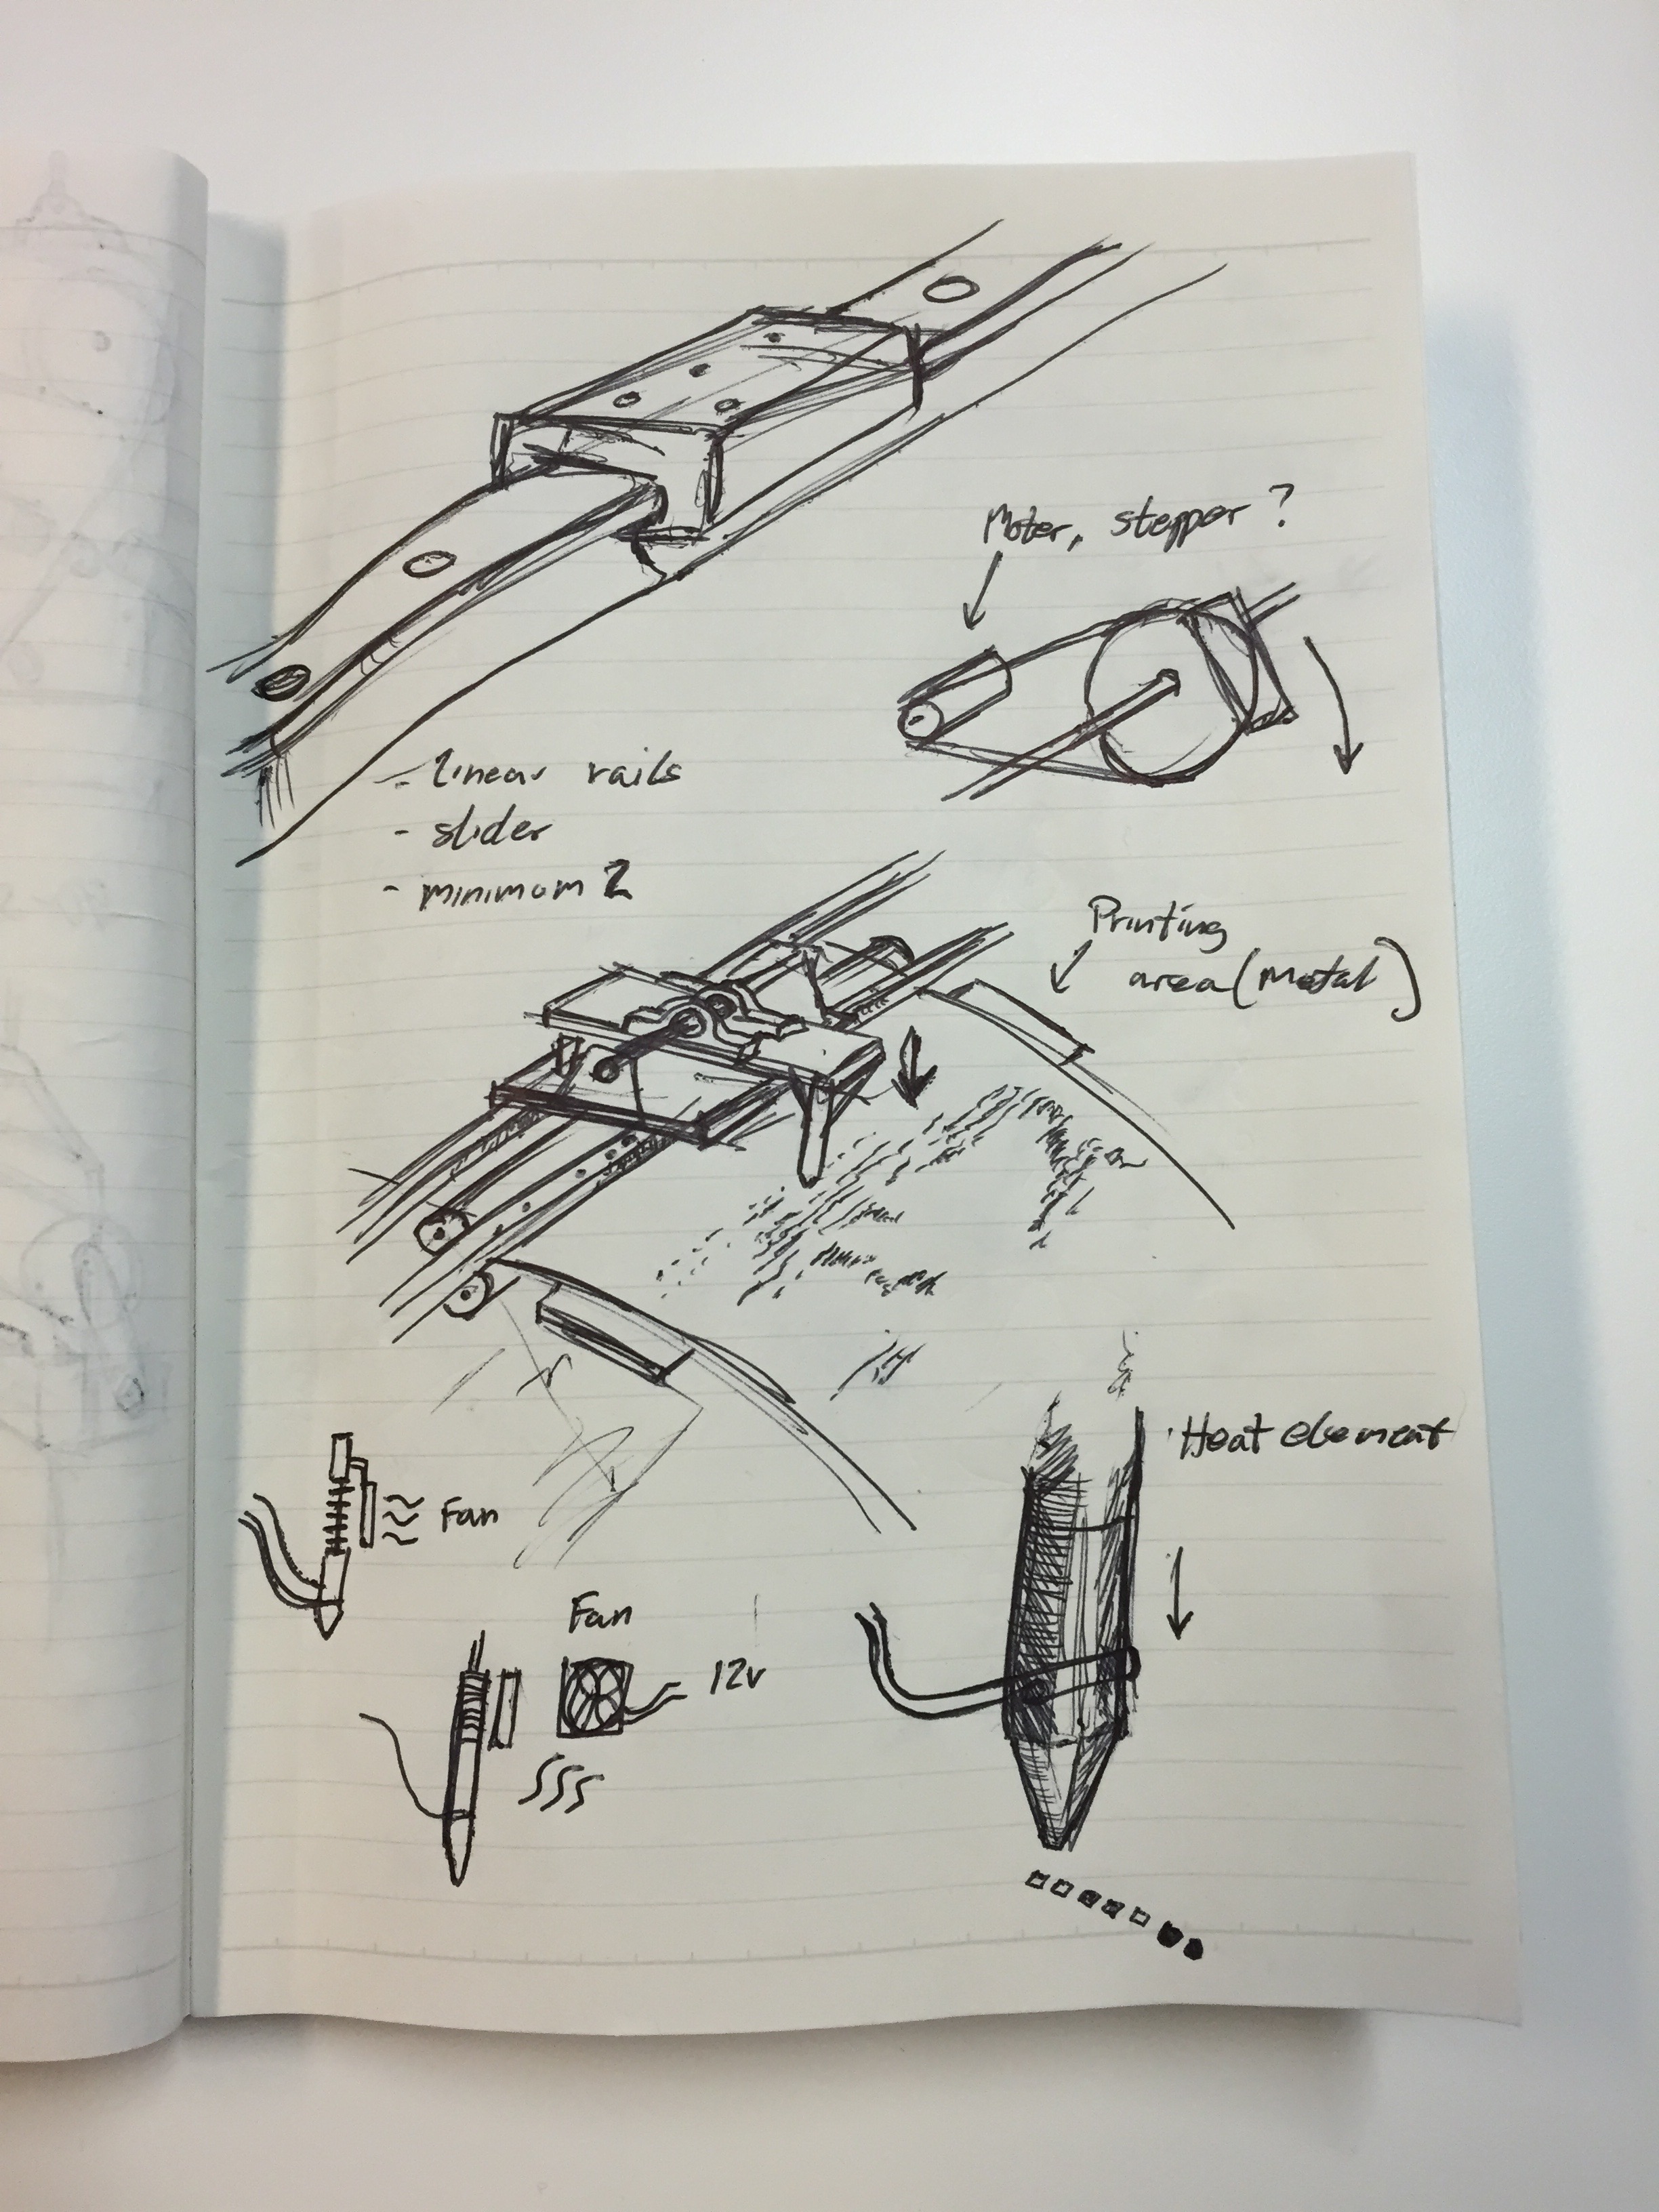 Moter, stepper?
- linear rails
- slider
- minimum 2
Printing
area (Metal)
Heat element
Fan
Fan
12v